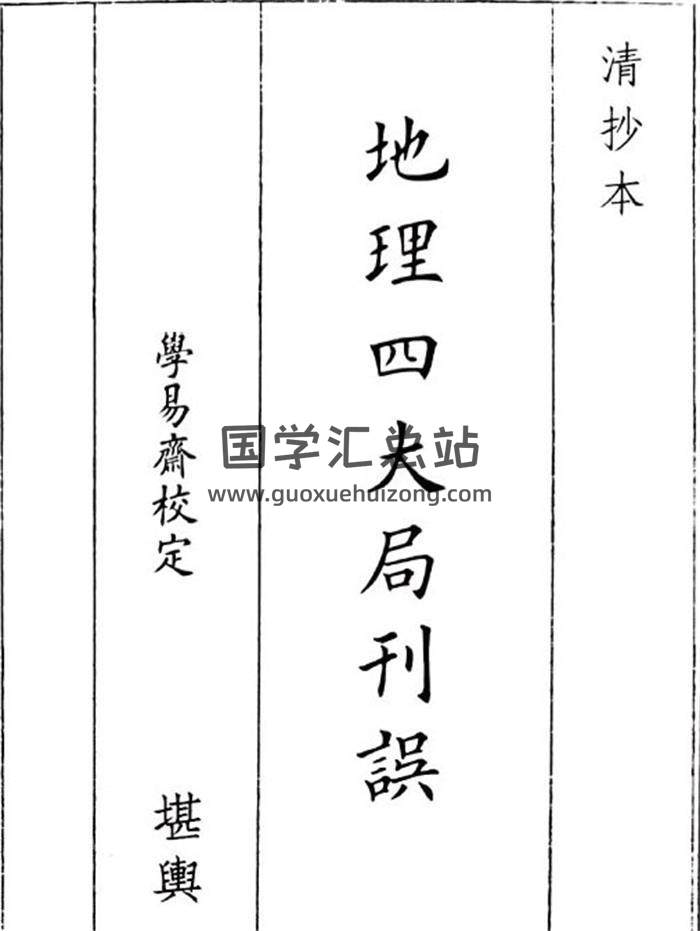 清抄本
地理四大局刊誤
學易齋校定
堪輿
国学汇总站
www.guoxuehuizong.com